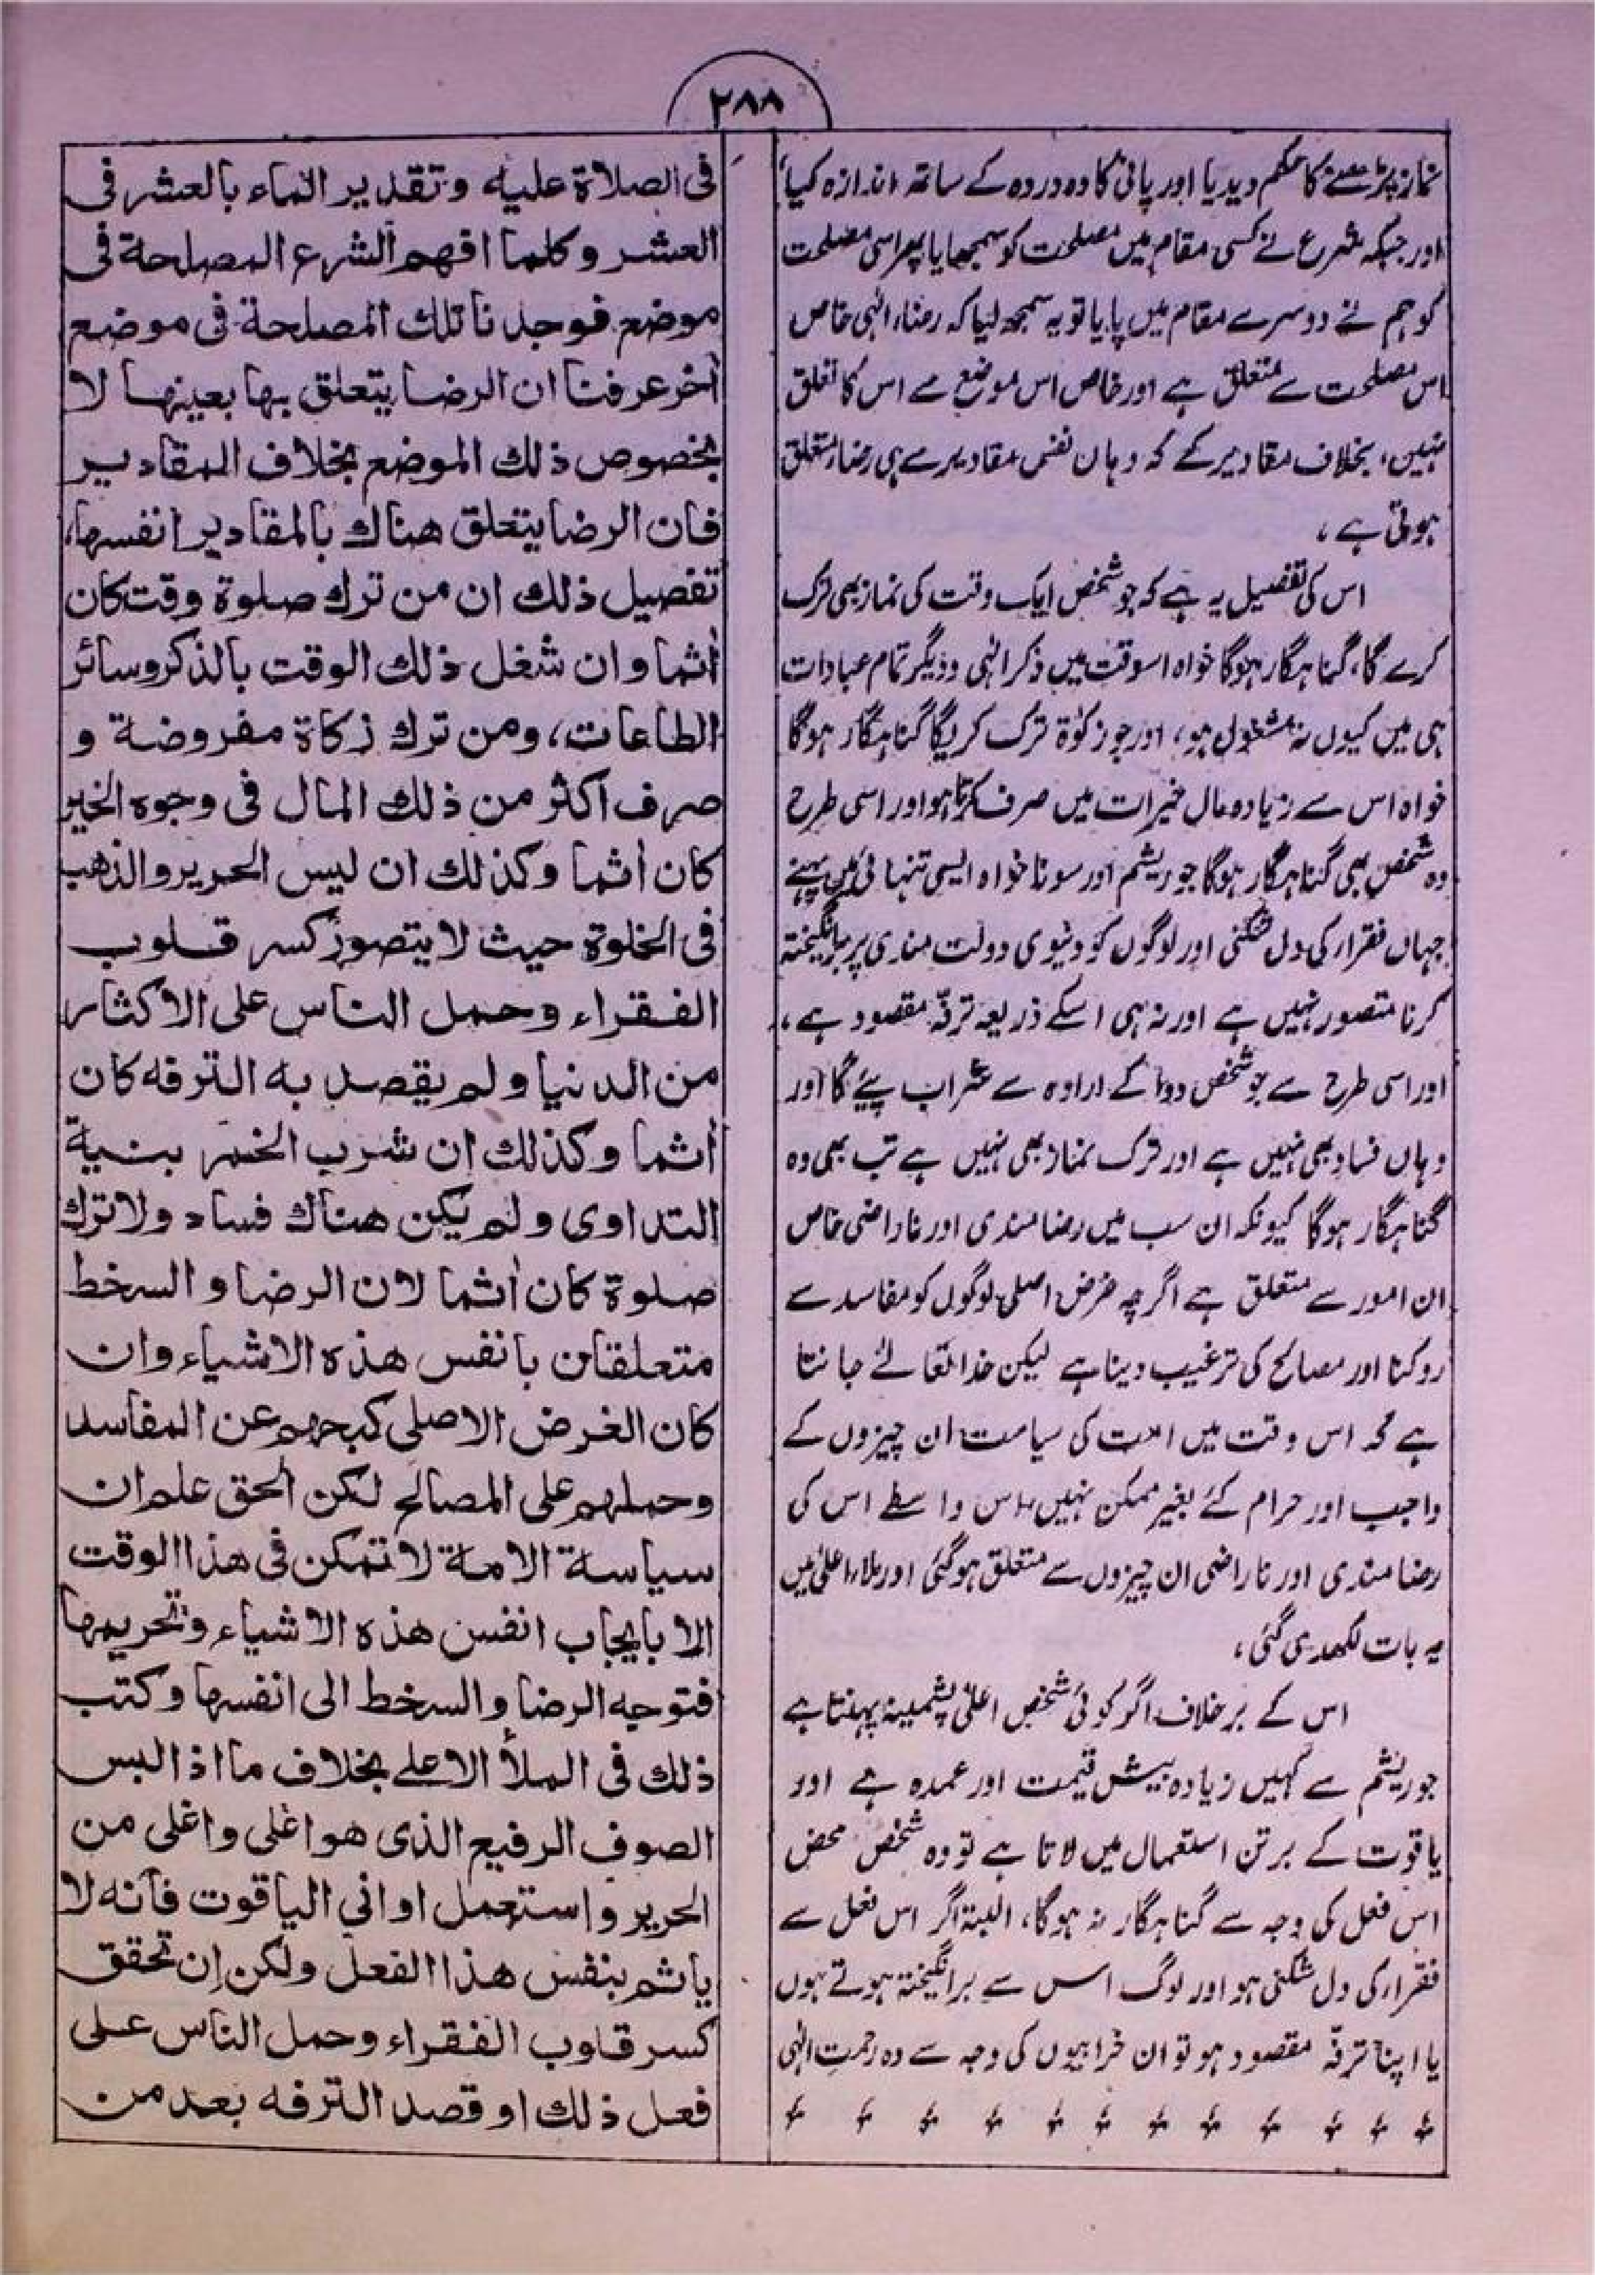 ۲۸۸
نماز پڑھنے کا حکم دیدیا اور پانی کا دہ در دہ کے ساتھ اندازہ کیا،
اور جبکہ شرع نے کسی مقام میں مصلحت کو سمجھایا پھر اسی مصلحت
کو ہم نے دوسرے مقام میں پایا تو یہ سمجھ لیا کہ رضاء الٰہی خاص
اس مصلحت سے متعلق ہے اور خاص اس موضع سے اس کا تعلق
نہیں، بخلاف مقادیر کے کہ وہاں نفس مقادیر سے ہی رضاء متعلق
ہوتی ہے،
اس کی تفصیل یہ ہے کہ جو شخص ایک وقت کی نماز بھی ترک
کرے گا، گناہگار ہوگا خواہ اسوقت میں ذکر الٰہی و دیگر تمام عبادات
ہی میں کیوں نہ مشغول ہو، اور جو زکوٰۃ ترک کریگا گناہگار ہوگا
خواہ اس سے زیادہ مال خیرات میں صرف کرتا ہو اور اسی طرح
وہ شخص بھی گناہگار ہوگا جو ریشم اور سونا خواہ ایسی تنہائی میں پہنے
جہاں فقراء کی دل شکنی اور لوگوں کو دنیوی دولت مندی پر برانگیختہ
کرنا متصور نہیں ہے اور نہ ہی اسکے ذریعہ ترفّہ مقصود ہے،
اور اسی طرح سے جو شخص دوا کے ارادہ سے شراب پیئے گا اور
وہاں فساد بھی نہیں ہے اور ترک نماز بھی نہیں ہے تب بھی وہ
گناہگار ہوگا کیونکہ ان سب میں رضا مندی اور ناراضی خاص
ان امور سے متعلق ہے اگرچہ غرض اصلی لوگوں کو مفاسد سے
روکنا اور مصالح کی ترغیب دینا ہے لیکن خدا تعالےٰ جانتا
ہے کہ اس وقت میں امت کی سیاست ان چیزوں کے
واجب اور حرام کئے بغیر ممکن نہیں، اس واسطے اس کی
رضا مندی اور ناراضی ان چیزوں سے متعلق ہوگئی اور ملاء اعلیٰ میں
یہ بات لکھدی گئی،
اس کے برخلاف اگر کوئی شخص اعلیٰ پشمینہ پہنتا ہے
جو ریشم سے کہیں زیادہ بیش قیمت اور عمدہ ہے اور
یاقوت کے برتن استعمال میں لاتا ہے تو وہ شخص محض
اس فعل کی وجہ سے گناہگار نہ ہوگا، البتہ اگر اس فعل سے
فقراء کی دل شکنی ہو اور لوگ اس سے برانگیختہ ہوتے ہوں
یا اپنا ترفّہ مقصود ہو تو ان خرابیوں کی وجہ سے وہ رحمتِ الٰہی
فی الصلاة علیه وتقدیر الماء بالعشر فی
العشر وکلما افهم الشرع المصلحة فی
موضع فوجدنا تلك المصلحة فی موضع
أخر عرفنا ان الرضا یتعلق بها بعینها لا
بخصوص ذلك الموضع بخلاف المقادیر
فان الرضا یتعلق هناك بالمقادیر انفسها،
تفصیل ذلك ان من ترك صلوة وقت کان
أثما وان شغل ذلك الوقت بالذکر وسائر
الطاعات، ومن ترك زکاة مفروضة و
صرف اکثر من ذلك المال فی وجوه الخیر
کان أثما وکذلك ان لبس الحریر والذهب
فی الخلوة حیث لا یتصور کسر قلوب
الفقراء وحمل الناس علی الاکثار
من الدنیا ولم یقصد به الترفه کان
أثما وکذلك ان شرب الخمر بنیة
التداوی ولم یکن هناك فساد ولا ترك
صلوة کان أثما لان الرضا والسخط
متعلقان بانفس هذه الاشیاء وان
کان الغرض الاصلی کبحهم عن المفاسد
وحملهم علی المصالح لکن الحق علم ان
سیاسة الامة لا تمکن فی هذا الوقت
الا بایجاب انفس هذه الاشیاء وتحریمها
فتوجه الرضا والسخط الی انفسها وکتب
ذلك فی الملأ الاعلے بخلاف ما اذا لبس
الصوف الرفیع الذی هو اعلی واغلی من
الحریر واستعمل اوانی الیاقوت فأنه لا
یأثم بنفس هذا الفعل ولکن إن تحقق
کسر قلوب الفقراء وحمل الناس علی
فعل ذلك او قصد الترفه بعد من